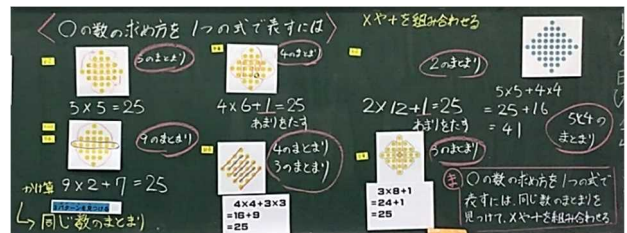 ○の数の求め方を1つの式で表すには
×や+を組み合わせる
5のまとまり
5×5=25
4のまとまり
4×6+1=25
あまりをたす
2のまとまり
2×12+1=25
あまりをたす
5×5+4×4
=25+16
=41
5と4の
まとまり
9のまとまり
かけ算 9×2+7=25
同じ数のまとまり
4のまとまり
3のまとまり
4×4+3×3
=16+9
=25
3のまとまり
3×8+1
=24+1
=25
ま ○の数の求め方を1つの式で
表すには、同じ数のまとまりを
見つけて、×や+を組み合わせる。